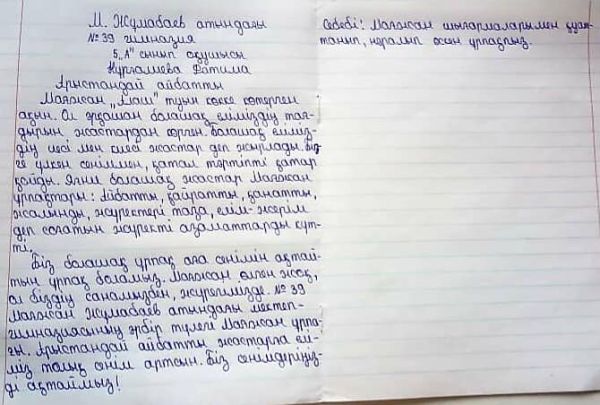 М. Жұмабаев атындағы
№ 39 гимназия
5 „А" сынып оқушысы
Нурғалиева Фатима
Арыстандай айбатты
Мағжан „Алаш" туын көкке көтерген
ақын. Ол әрқашан болашақ еліміздің тая-
дырын, жастардан көрген. Болашақ еліміз-
дің иесі мен киесі жастар деп жырлады. Біз-
ге үлкен сеніммен, қатал тәртіпті қатар
қойды. Яғни болашақ жастар Мағжан
ұрпақтары: Айбатты, қайратты, қанатты,
жалынды, жүректері таза, елім-жерім
деп соғатын жүректі азаматтарды күт-
ті.
Біз болашақ ұрпақ аға сенімін ақтай-
тын ұрпақ боламыз. Мағжан өлген жоқ,
ол біздің санамызбен, жүрегімізде. № 39
Мағжан Жұмабаев атындағы мектеп-
гимназиясының әрбір түлегі Мағжан ұрпа-
ғы. Арыстандай айбатты жастарға елі-
міз толық сенім артсын. Біз сенімдеріңіз-
ді ақтаймыз!
Себебі: Мағжан шығармаларымен қуат-
танып, нәрленіп өскен ұрпақпыз.